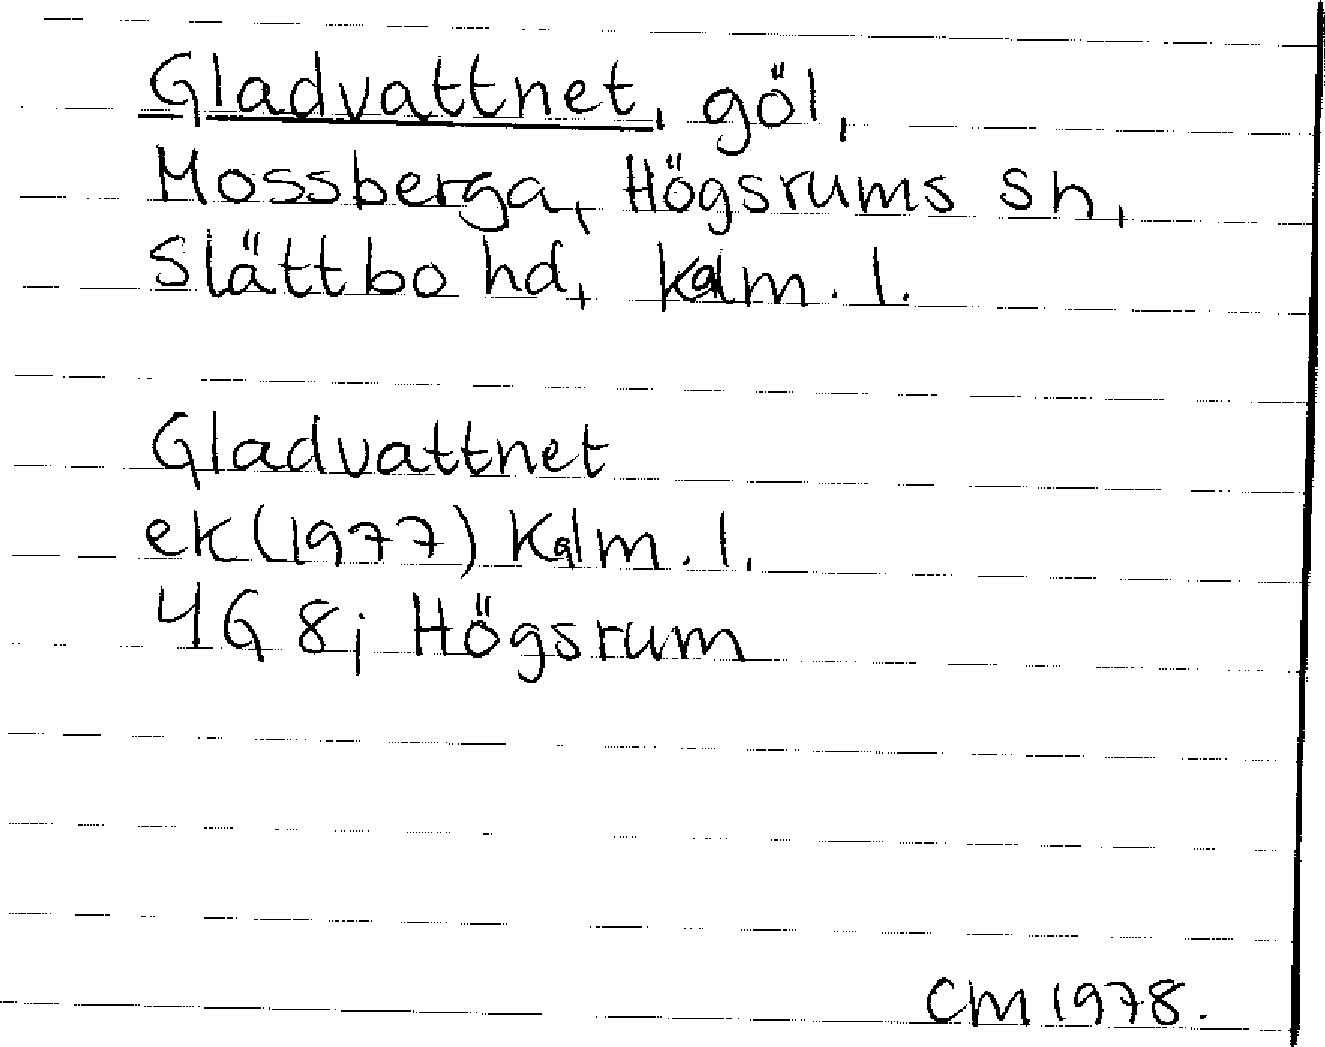 Gladvattnet, göl,
Mossberga, Högsrums sn,
Slättbo hd, Kalm. l.
Gladvattnet
ek (1977) Kalm. l.
4G 8j Högsrum
CM 1978.